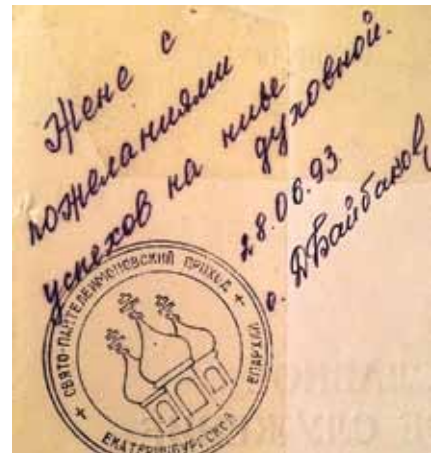 Жене с
пожеланиями
успехов на ниве
духовной.
28.06.93.
о. Д Байбаков
+ СВЯТО-ПАНТЕЛЕИМОНОВСКИЙ ПРИХОД +
ЕКАТЕРИНБУРГСКОЙ ЕПАРХИИ